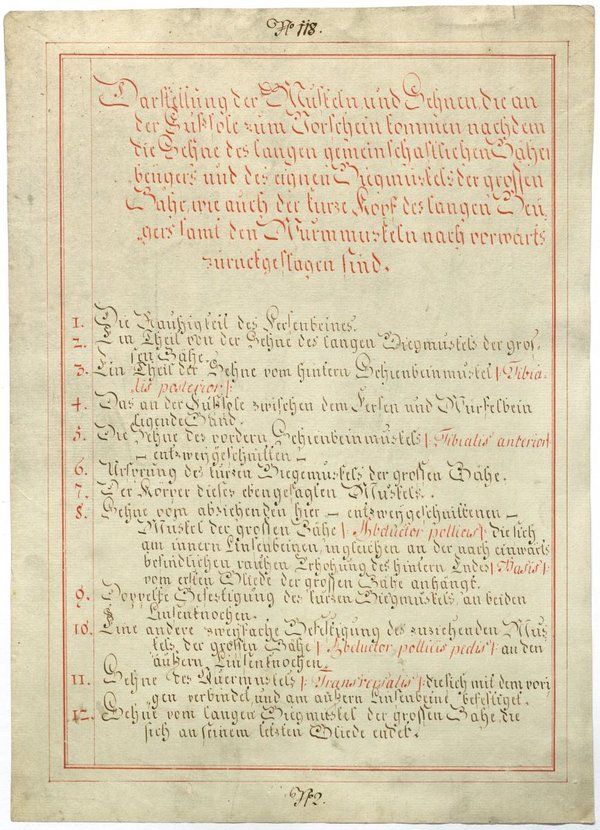 No 118.
Darstellung der Muskeln und Sehnen, die an
der Fußsole zum Vorschein kommen nachdem
die Sehne des langen gemeinschaftlichen Zähe
beugers und des eignen Biegmuskels der grossen
Zähe, wie auch der kurze Kopf des langen Beu
gers samt den Wurmmuskeln nach vorwärts
zurückgeslagen sind.
1. Die Rauhigkeit des Fersenbeines.
2. Ein Theil von der Sehne des langen Biegmuskels der gros-
sen Zähe.
3. Ein Theil der Sehne vom hintern Schienbeinmuskel |: Tibia-
lis posterior :|
4. Das an der Fußsole zwischen dem Fersen und Würfelbein
ligende Band.
5. Die Sehne des vordern Schienbeinmuskels |: Tibialis anterior
– entzweigeschnitten –
6. Ursprung des kurzen Biegemuskels der grossen Zähe.
7. Der Körper dieses ebengesagten Muskels.
8. Sehne vom abziehenden hier – entzweygeschnittenen –
Muskel der grossen Zähe |: Abductor pollicis :| die sich
am innern Linsenbeinen, ingleichen an der nach einwärts
befindlichen rauhen Erhohung des hintern Endes |: Basis :|
vom ersten Gliede der grossen Zähe anhängt.
9. Doppelte Befestigung des kurzen Biegmuskels an beiden
Linsenknochen.
10. Eine andere zweyfache Befestigung des anziehenden Mus
kels der grossen Zähe |: Abductor pollicis pedis :| an den
äußern Linsenknochen.
11. Sehne des Quermuskels |: Transversalis :| die sich mit dem vori
gen verbindet und am äußern Linsenbeine befestiget.
12. Sehne vom langen Biegmuskel der grossen Zähe, die
sich an seinem letzten Gliede endet.
No 2.